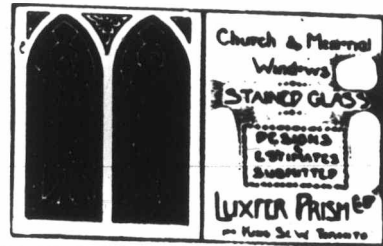 Church & Memorial
Windows
STAINED GLASS
DESIGNS
&
ESTIMATES
SUBMITTED
LUXFER PRISM
King St W Toronto